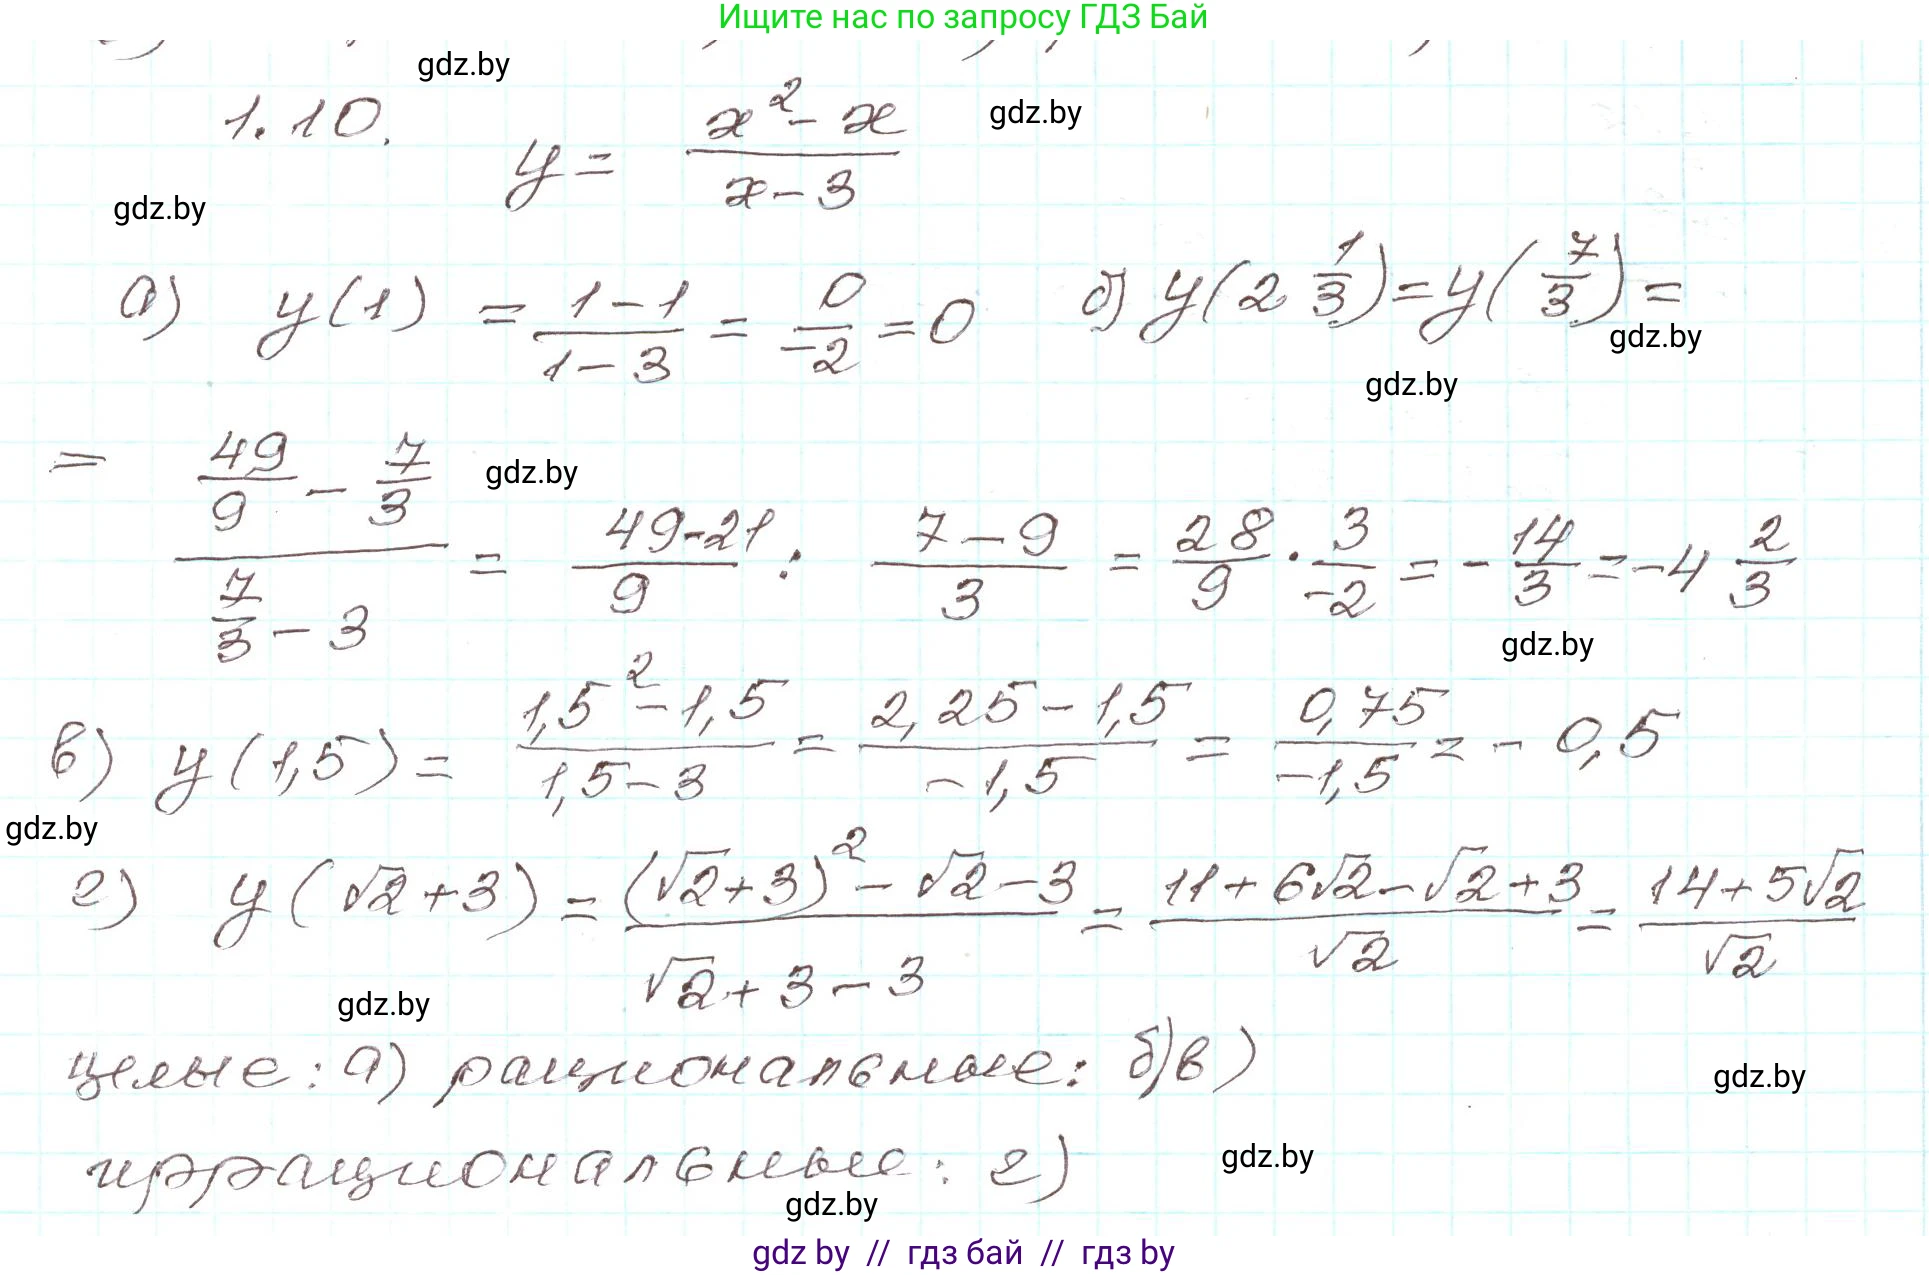 Ищите нас по запросу ГДЗ Бай
gdz.by
1.10. y = \frac{x^2 - x}{x - 3}
gdz.by
gdz.by
а) y(1) = \frac{1-1}{1-3} = \frac{0}{-2} = 0 б) y(2\frac{1}{3}) = y(\frac{7}{3}) =
gdz.by
gdz.by
= \frac{\frac{49}{9} - \frac{7}{3}}{\frac{7}{3} - 3} = \frac{49-21}{9} : \frac{7-9}{3} = \frac{28}{9} · \frac{3}{-2} = -\frac{14}{3} = -4\frac{2}{3}
gdz.by
gdz.by
в) y(1,5) = \frac{1,5^2 - 1,5}{1,5 - 3} = \frac{2,25 - 1,5}{-1,5} = \frac{0,75}{-1,5} = -0,5
gdz.by
г) y(√2+3) = \frac{(√2+3)^2 - √2 - 3}{√2+3-3} = \frac{11+6√2-√2+3}{√2} = \frac{14+5√2}{√2}
gdz.by
целые: а) рациональные: б) в)
gdz.by
иррациональные: г)
gdz.by
gdz.by
gdz by // гдз бай // гдз by